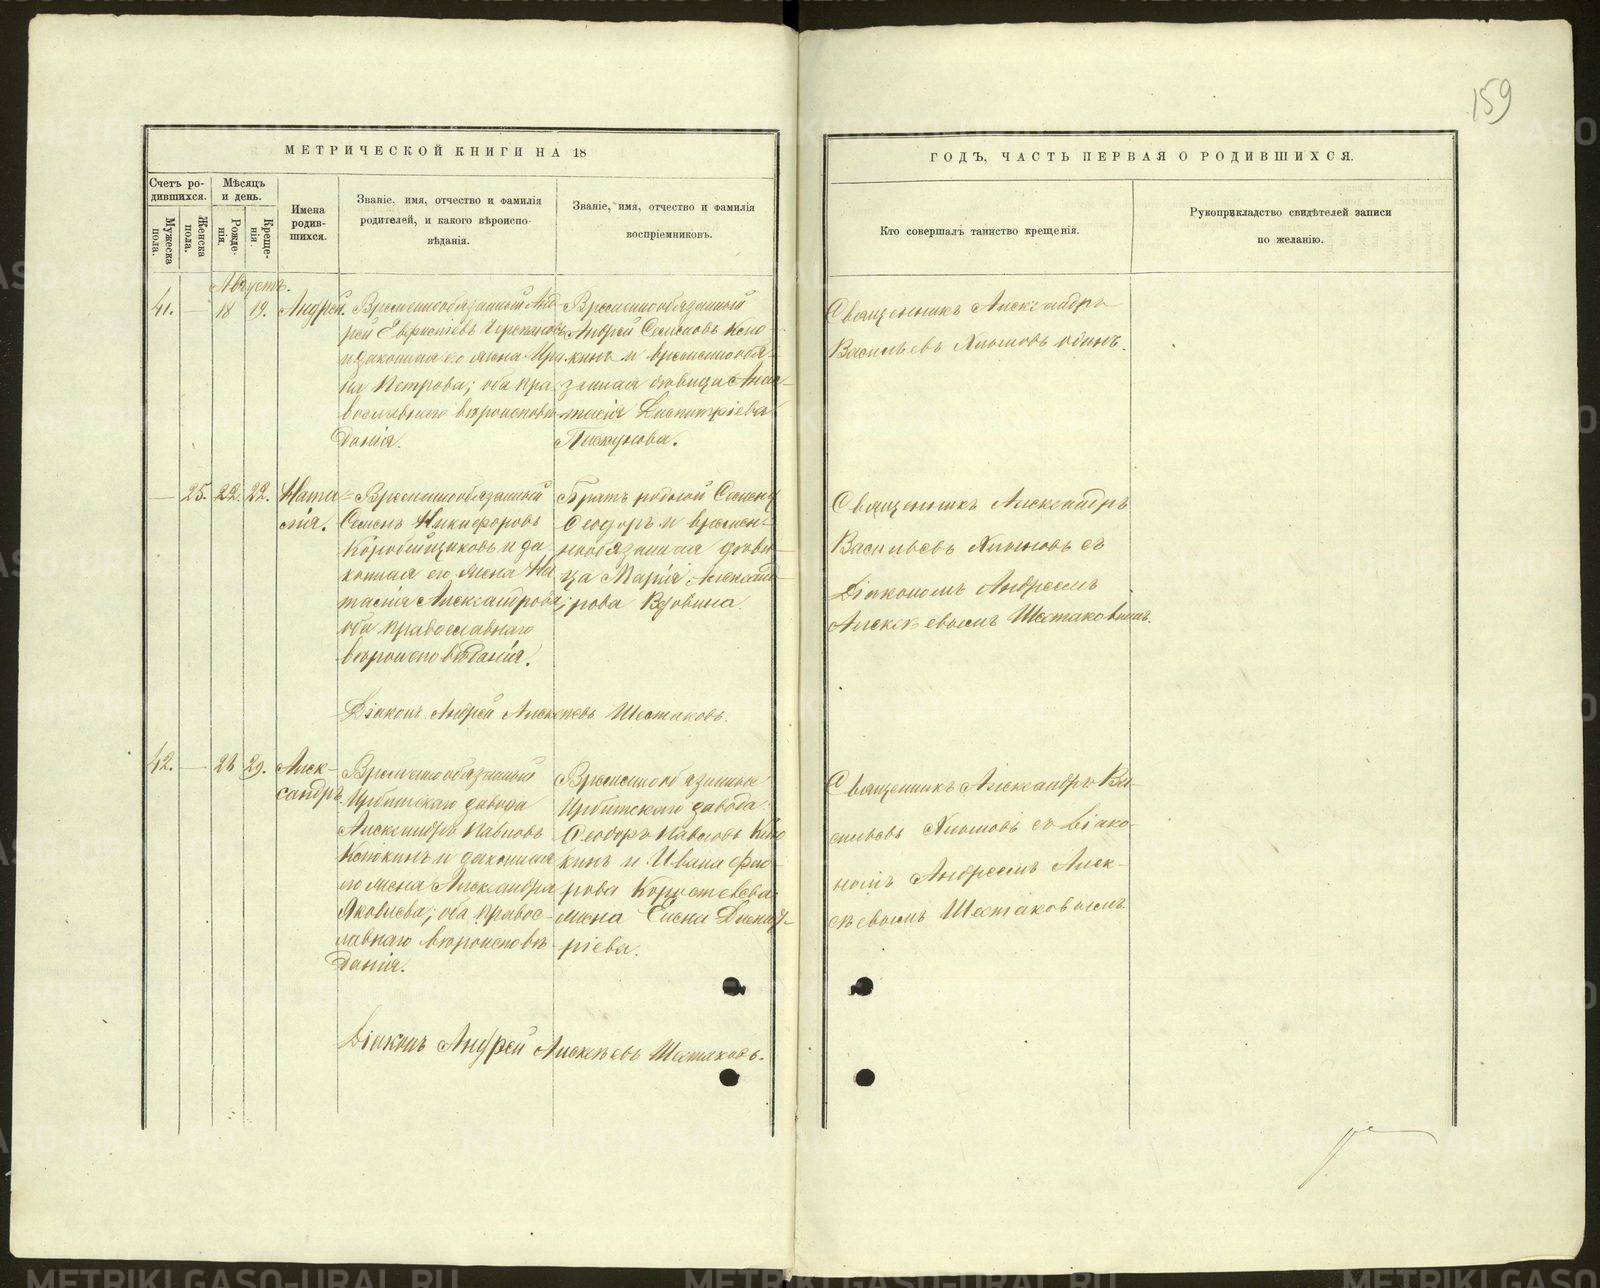 159
МЕТРИЧЕСКОЙ КНИГИ НА 18
ГОДЪ, ЧАСТЬ ПЕРВАЯ О РОДИВШИХСЯ.
Счетъ ро-
дившихся.
Мужеска
пола.
Женска
пола.
Мѣсяцъ
и день.
Рожде-
нія.
Креще-
нія.
Имена
родив-
шихся.
Званіе, имя, отчество и фамилія
родителей, и какого вѣроиспо-
вѣданія.
Званіе, имя, отчество и фамилія
воспріемниковъ.
Кто совершалъ таинство крещенія.
Рукоприкладство свидѣтелей записи
по желанію.
Августъ.
41. — 18 19. Андрей.
Временнообязанный Анд-
рей
и законная его жена Ири
на Петрова; оба пра
вославнаго вѣроисповѣ
данія.
Временнообязанный
Андрей Семеновъ
кинъ и временнообя-
занная дѣвица Анас-
тасія Димитріева
Пискунова.
Священникъ Александръ
Васильевъ одинъ.
— 25. 22. 22. Ната
лія.
Временнообязанный
Семенъ Никифоровъ
Коробейщиковъ и за
конная его жена На
тасія Александрова;
оба православнаго
вѣроисповѣданія.
Братъ родной Семену
Ѳеодоръ и времен-
нообязанная дѣви-
ца Марія Александ
рова Вдовина.
Священникъ Александръ
Васильевъ съ
Діакономъ Андреемъ
Алексѣевымъ Шестаковымъ.
Діаконъ Андрей Алексѣевъ Шестаковъ.
42. — 28 29. Алек-
сандръ
Временнообязанный
Ирбитскаго завода
Александръ Павловъ
Клюкинъ и законная
его жена Александра
Яковлева; оба правос-
лавнаго вѣроисповѣ
данія.
Временнообязанные
Ирбитскаго завода
Ѳеодоръ Павловъ Клю
кинъ и Ивана Фео
рова Коростелева
жена Елена Димит-
ріева.
Священникъ Александръ Ва-
сильевъ съ Діако-
номъ Андреемъ Алек-
сѣевымъ Шестаковымъ.
Діаконъ Андрей Алексѣевъ Шестаковъ.
METRIKI.GASO-URAL.RU